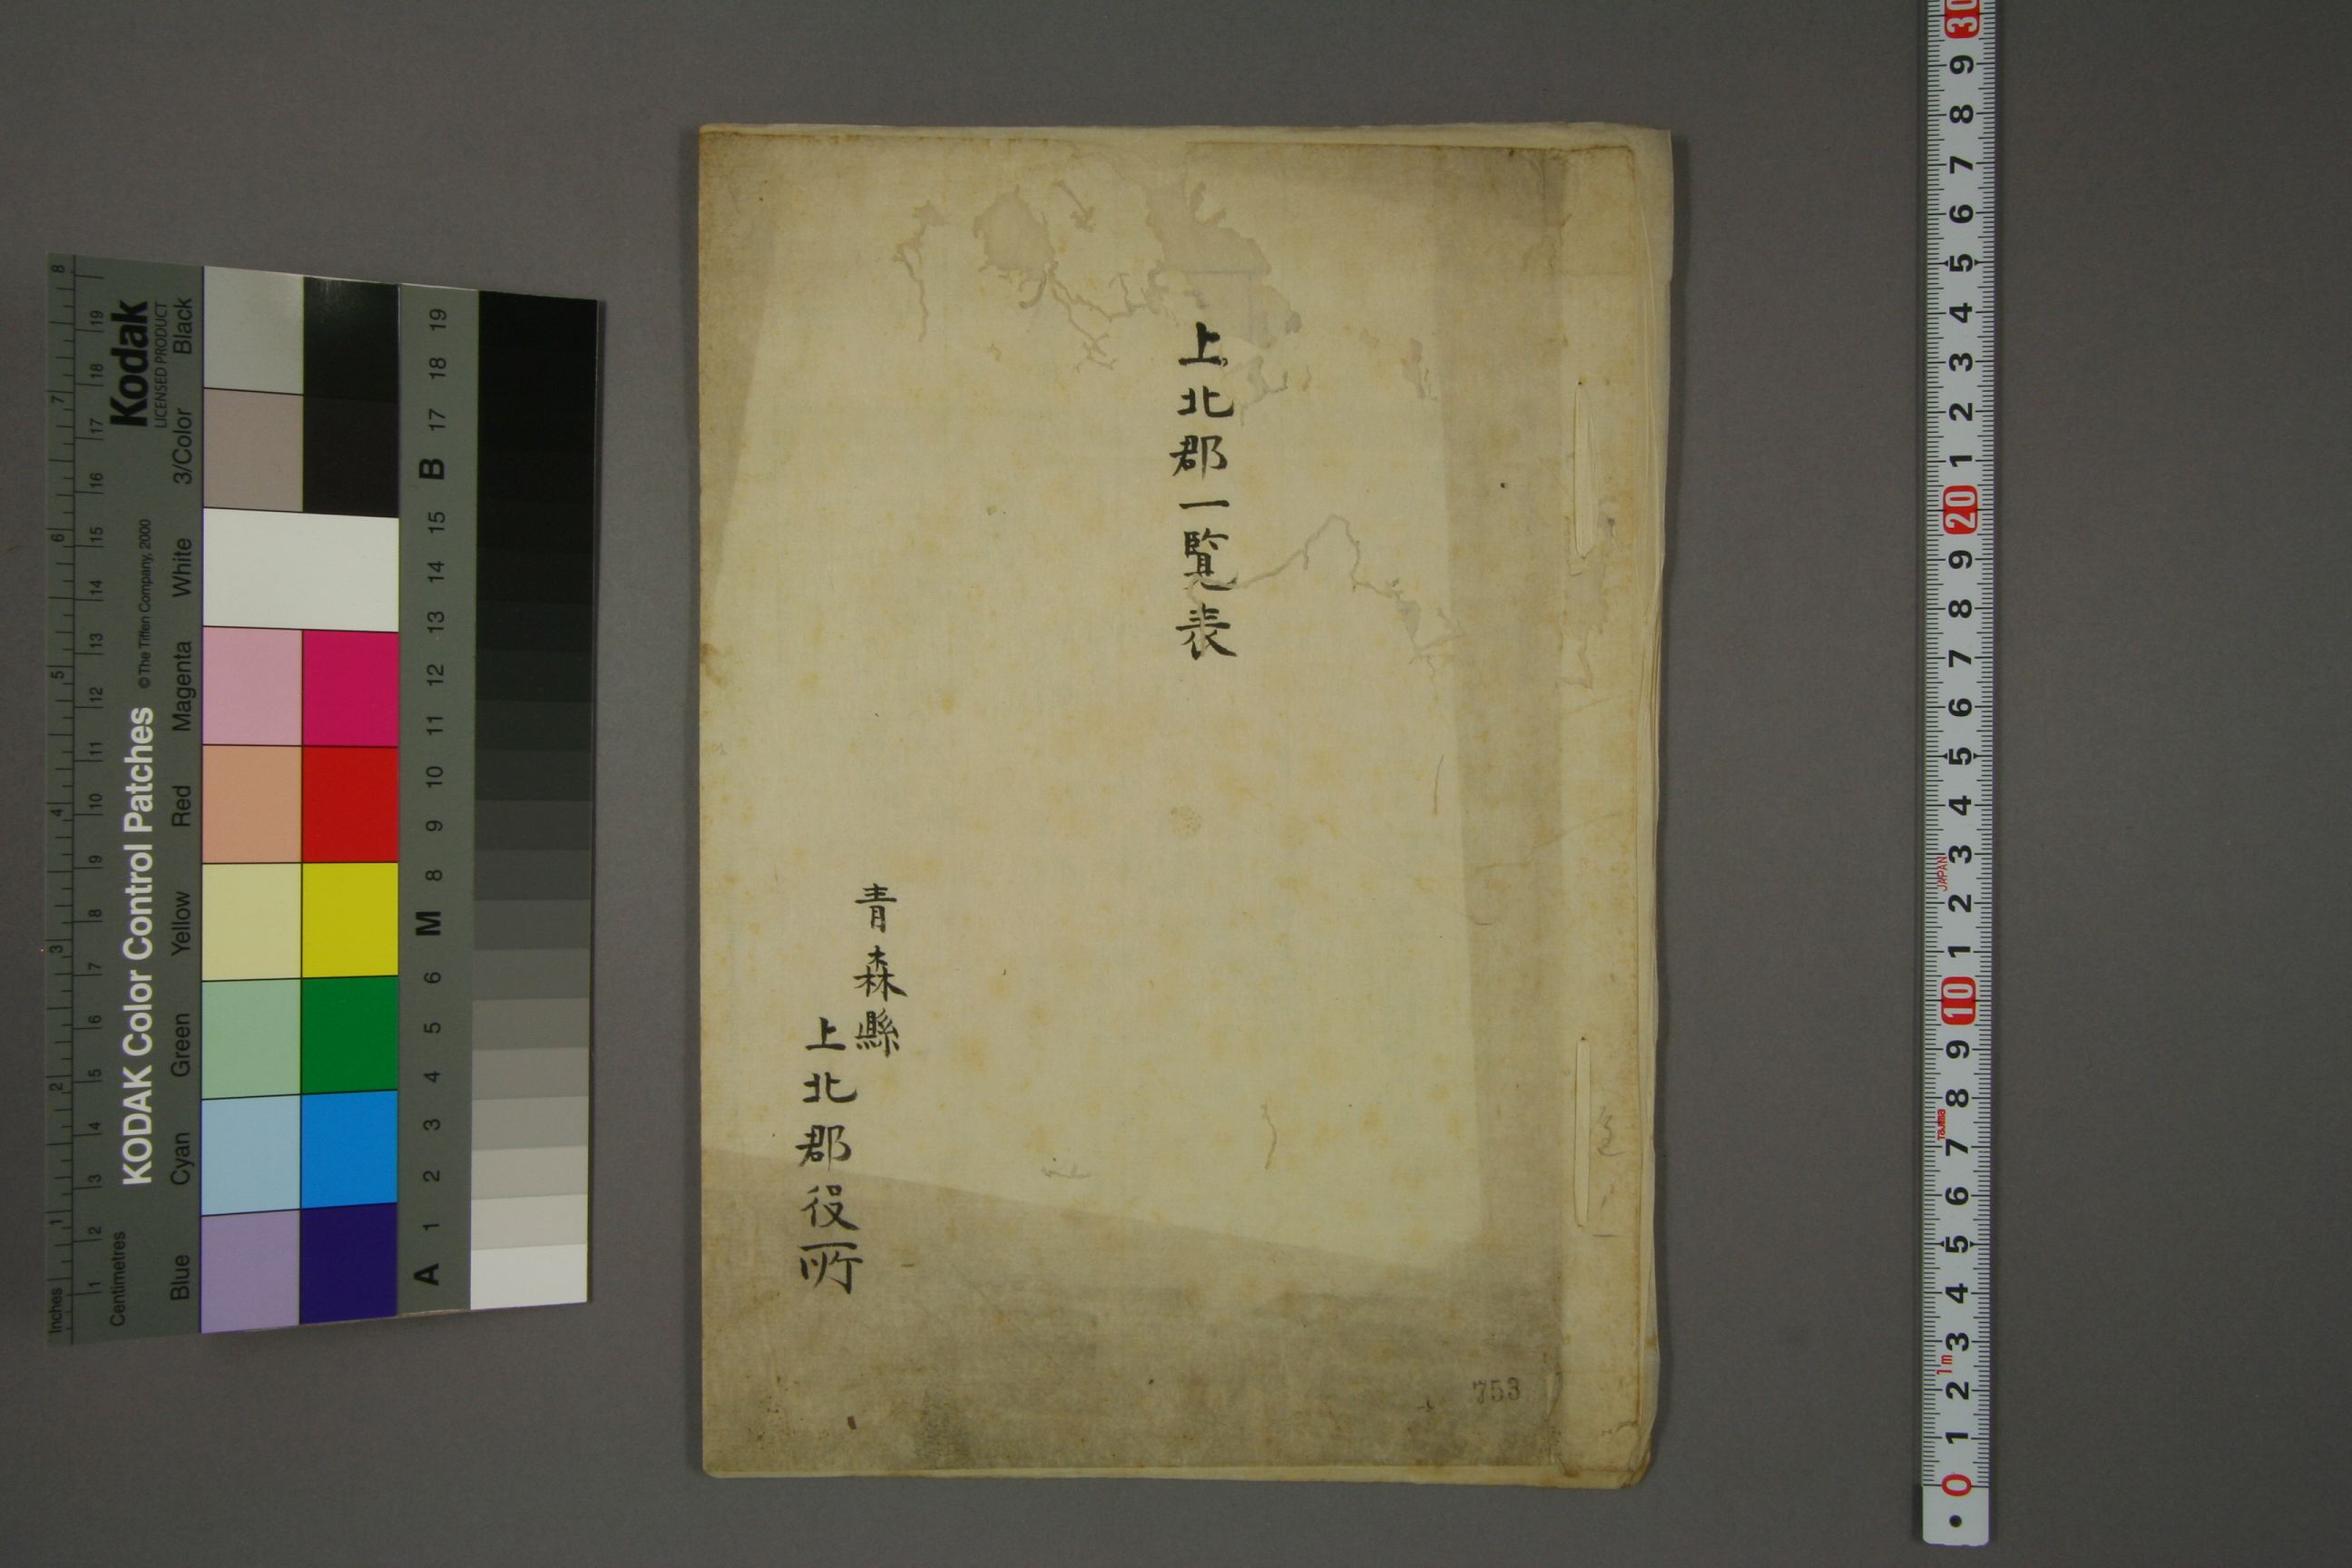 上北郡一覧表
青森縣
上北郡役所
753
Kodak
LICENSED PRODUCT
KODAK Color Control Patches
© The Tiffen Company, 2000
Blue Cyan Green Yellow Red Magenta White 3/Color Black
Inches 1 2 3 4 5 6 7 8
Centimetres 1 2 3 4 5 6 7 8 9 10 11 12 13 14 15 16 17 18 19
A 1 2 3 4 5 6 M 8 9 10 11 12 13 14 15 B 17 18 19
30 9 8 7 6 5 4 3 2 1 20 9 8 7 6 5 4 3 2 1 10 9 8 7 6 5 4 3 2 1 0
JAPAN
TaJima
1m